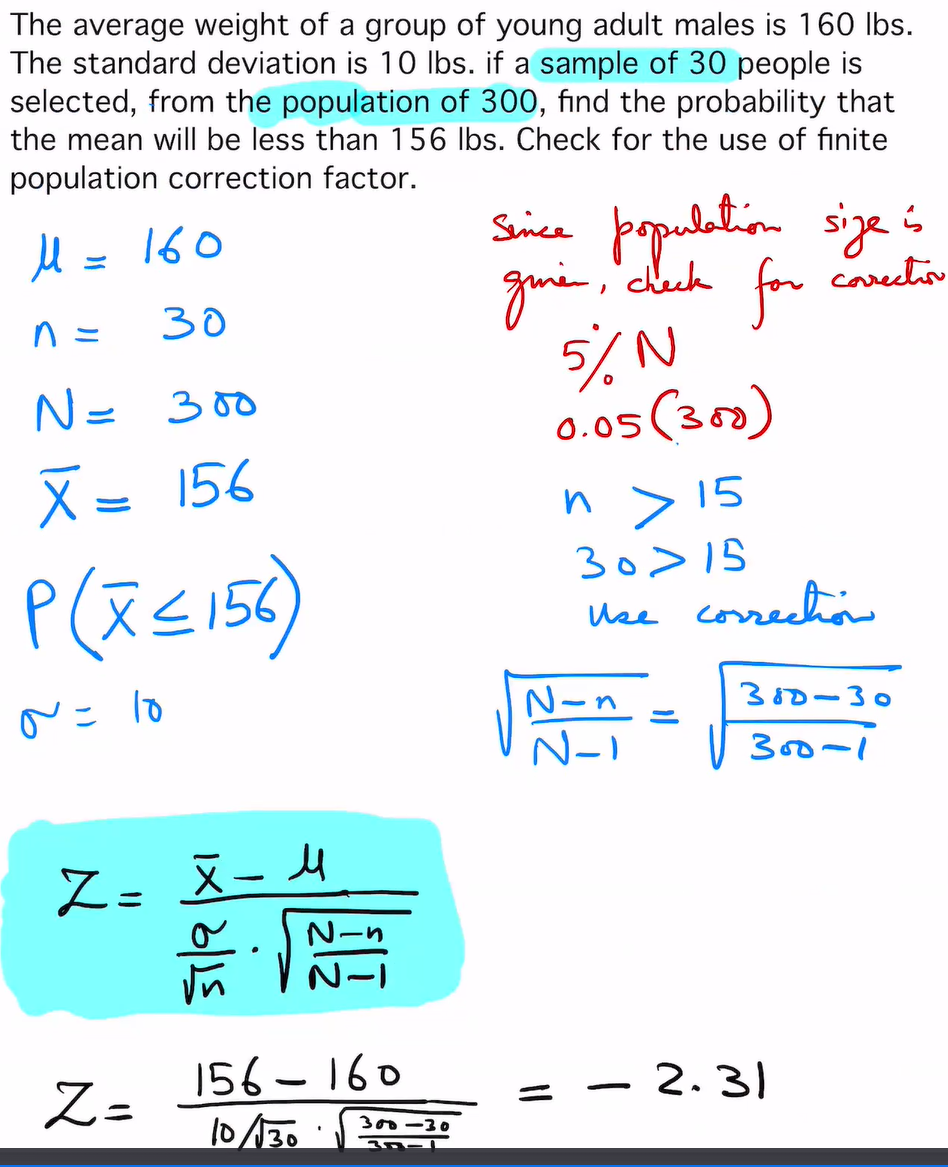 The average weight of a group of young adult males is 160 lbs.
The standard deviation is 10 lbs. if a sample of 30 people is
selected, from the population of 300, find the probability that
the mean will be less than 156 lbs. Check for the use of finite
population correction factor.
μ = 160
n = 30
N = 300
x̄ = 156
P(x̄ ≤ 156)
σ = 10
Since population size is
given, check for correction
5% N
0.05(300)
n > 15
30 > 15
Use correction
√((N-n)/(N-1)) = √((300-30)/(300-1))
Z = (x̄ - μ)/(σ/√n · √((N-n)/(N-1)))
Z = (156 - 160)/(10/√30 · √((300-30)/(300-1))) = -2.31